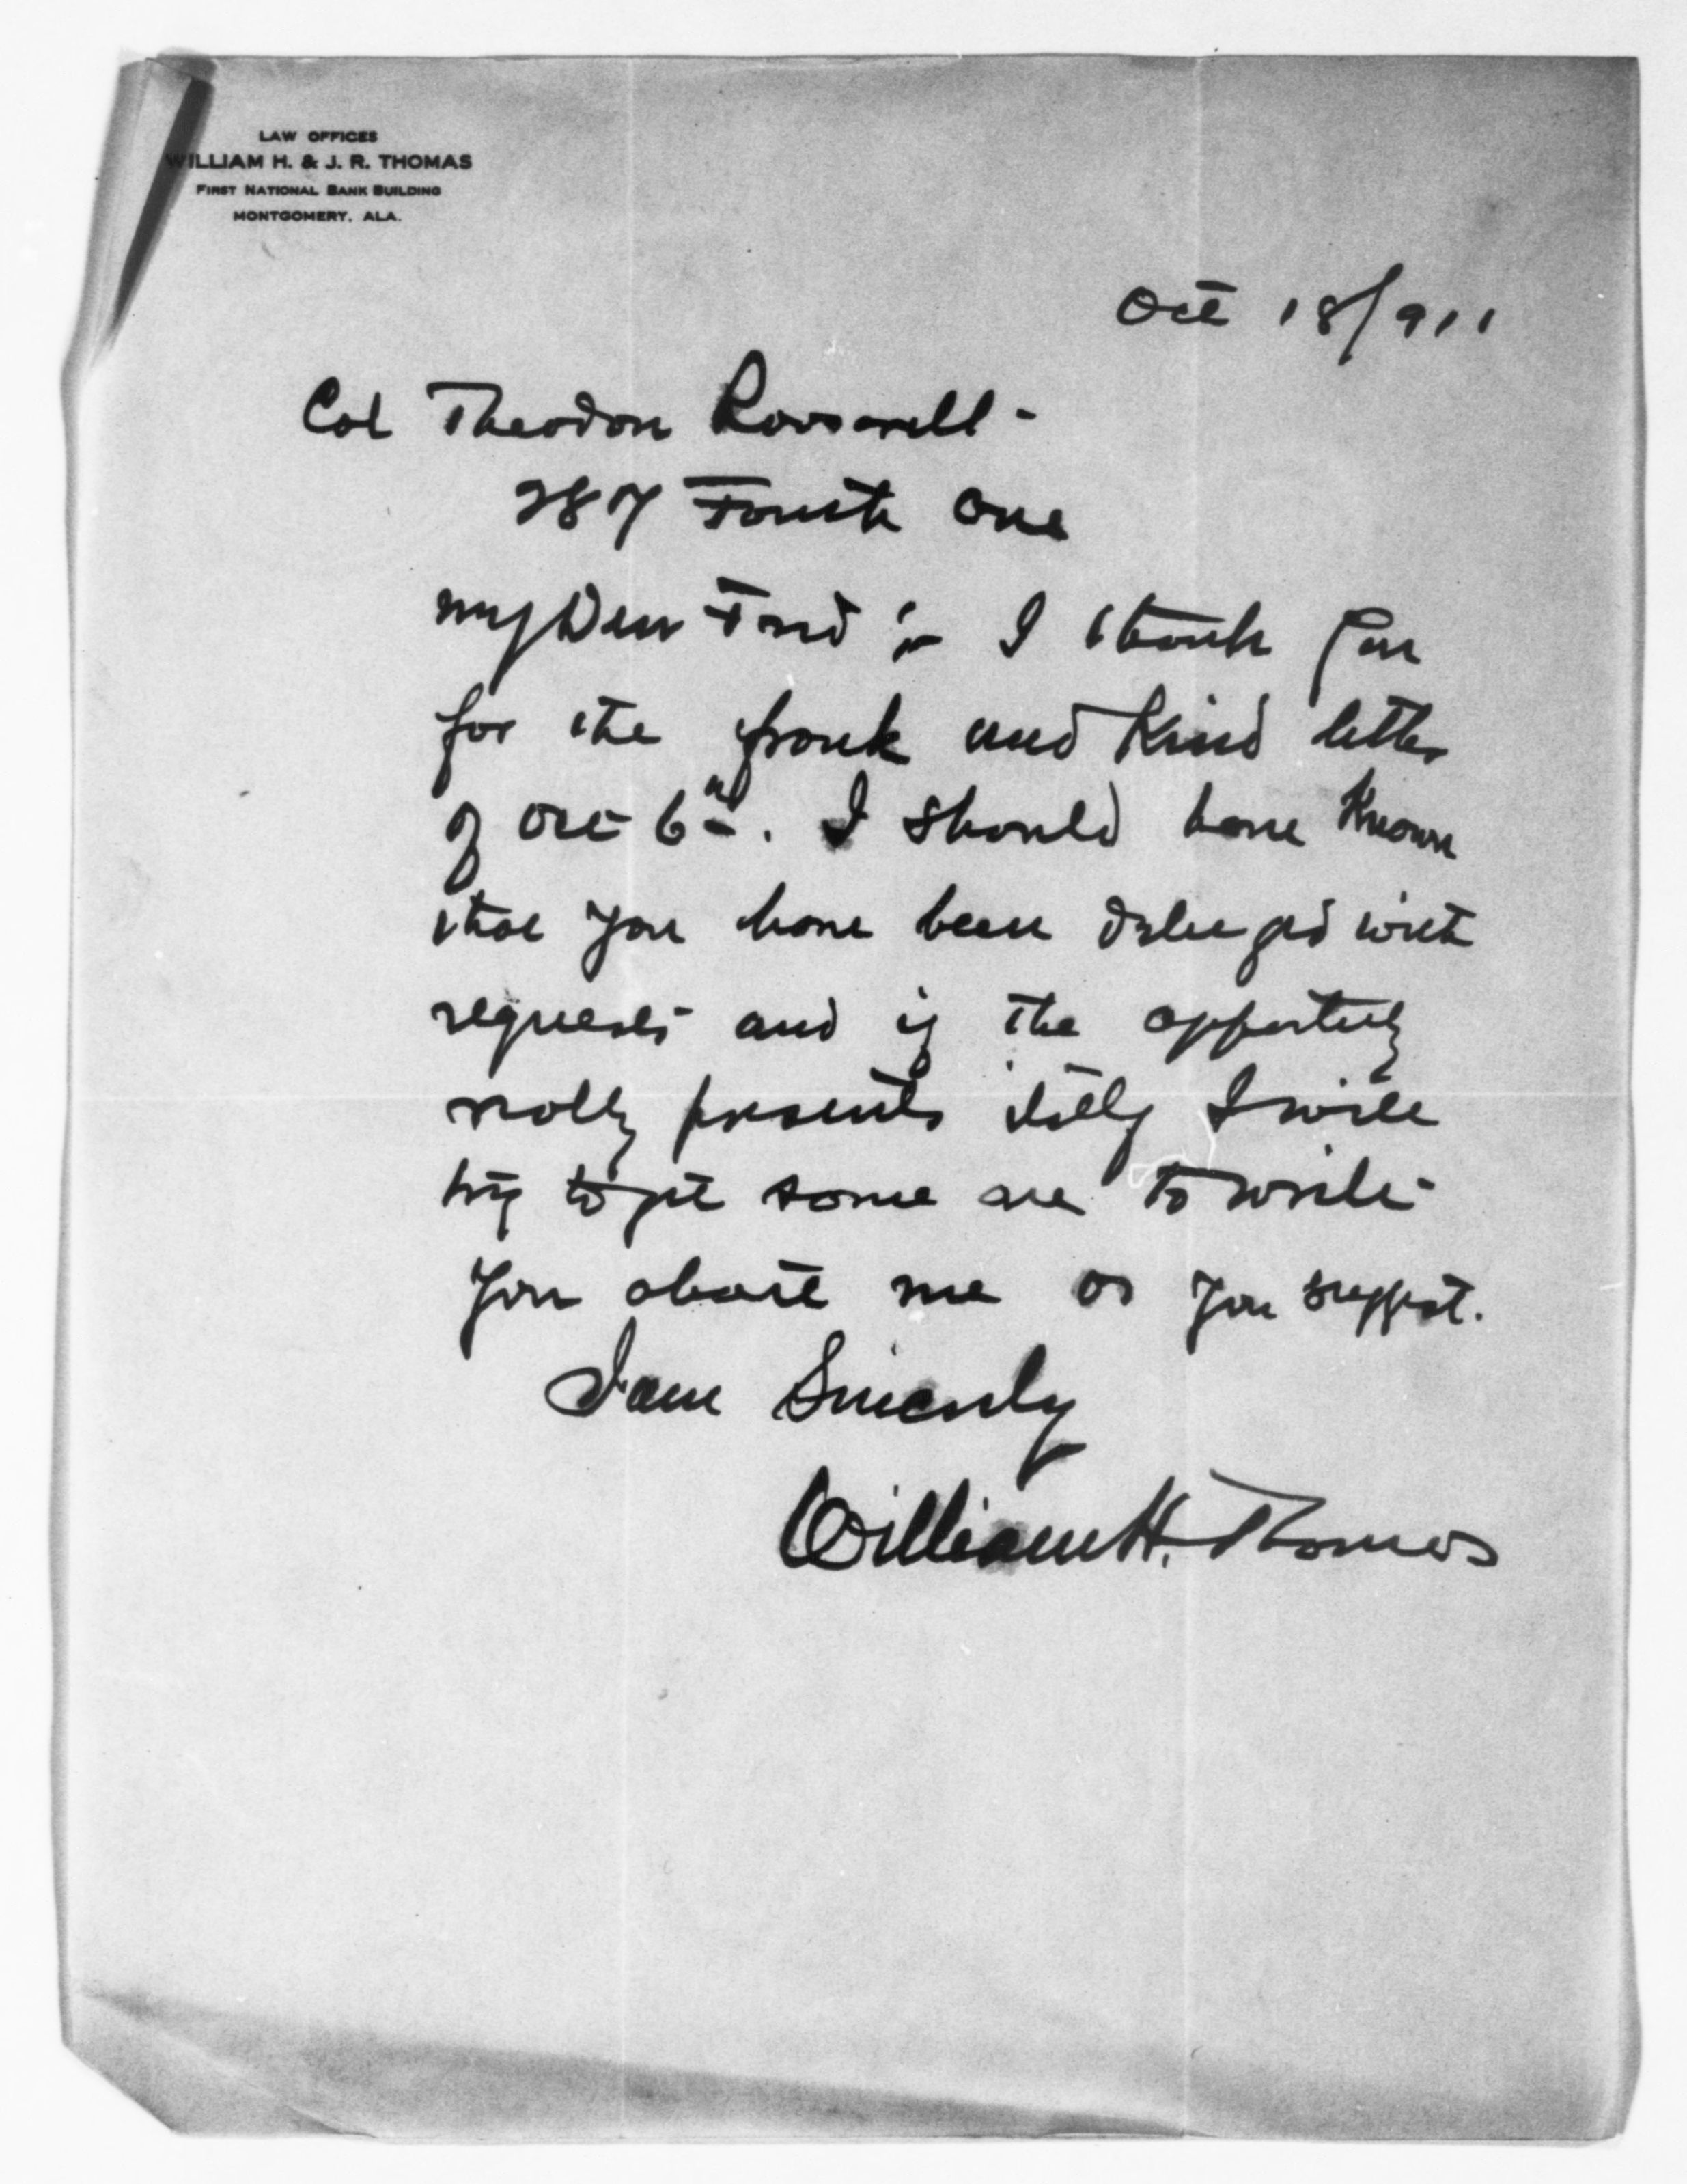 LAW OFFICES
WILLIAM H. & J. R. THOMAS
FIRST NATIONAL BANK BUILDING
MONTGOMERY, ALA.
Oct 18/911
Col Theodore Roosevelt -
287 Fourth Ave
My Dear Friend :- I thank you
for the frank and kind letter
of Oct 6th. I should have known
that you have been deluged with
requests and if the opportunity
really presents itself I will
try to get some one to write
you about me as you suggest.
I am Sincerely
William H. Thomas